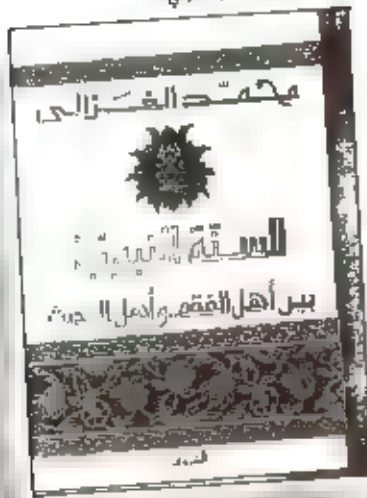 محمد الغزالى
السنة النبوية
بين أهل الفقه وأهل الحديث